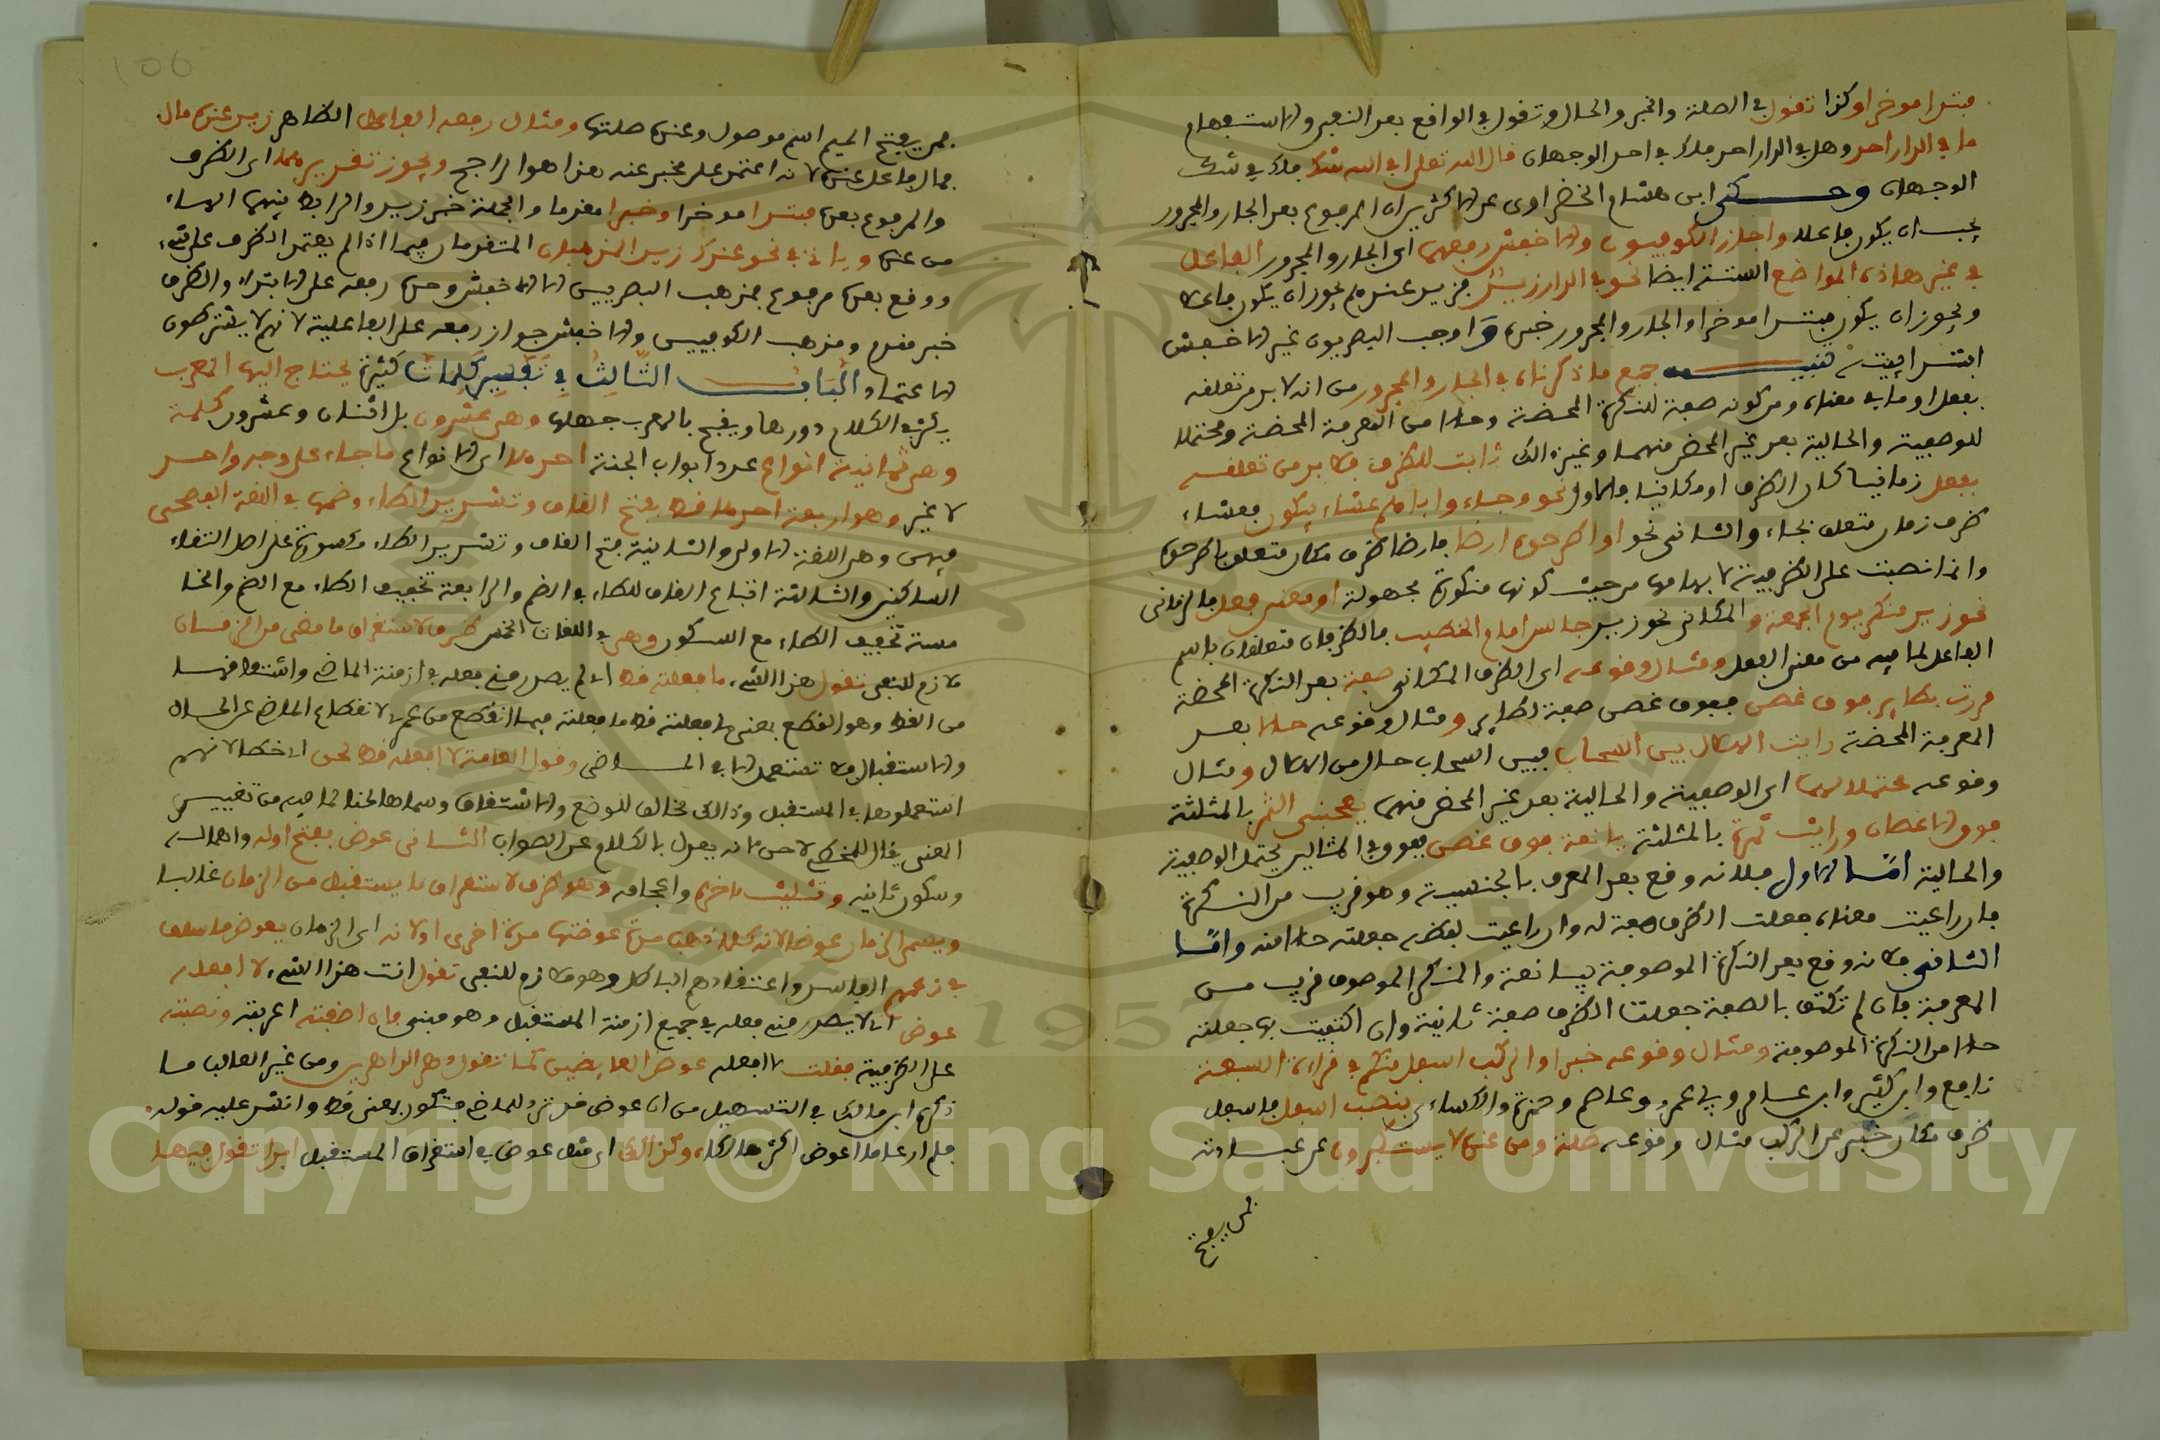 مبتدا موخرا وكذا تقول في الصلة والخبر والحال وتقول في الواقع بعد النفي والاستفهام
ما في الدار احد وهل في الدار احد فلك في احد الوجهان قال الله تعلى افي الله شك فلك في شك
الوجهان وحكى ابن هشام الخضراوي عن الاكثرين ان المرفوع بعد الجار والمجرور
يجب ان يكون فاعلا واجاز الكوفيون والاخفش رفعهما اي الجار والمجرور الفاعل
في غير هاذه المواضع الستة ايضا نحو في الدار زيد فزيد عندهم يجوز ان يكون فاعلا
ويجوز ان يكون مبتدا موخرا والجار والمجرور خبره واوجب البصريون غير الاخفش
ابتدائيته تنبيه جميع ما ذكرناه في الجار والمجرور من انه لا بد من تعلقه
بفعل او ما في معناه ومن كونه صفة للنكرة المحضة وحالا من المعرفة المحضة ومحتملا
للوصفية والحالية بعد غير المحض منهما وغير ذالك ثابت للظرف فلا بد من تعلقه
بفعل زمانيا كان الظرف او مكانيا فالاول نحو وجاءوا اباهم عشاء يبكون فعشاء
ظرف زمان متعلق بجاء والثاني نحو او اطرحوه ارضا فارضا ظرف مكان متعلق باطرحوه
وانما نصبت على الظرفية لابهامها من حيث كونها منكورة مجهولة او بمعنى فعل فالزماني
نحو زيد مبكر يوم الجمعة والمكاني نحو زيد جالس امام الخطيب فالظرفان متعلقان باسم
الفاعل لما فيه من معنى الفعل ومثال وقوعه اي الظرف المكاني صفة بعد النكرة المحضة
مررت بطاير فوق غصن ففوق غصن صفة لطاير ومثال وقوعه حالا بعد
المعرفة المحضة رايت الهلال بين السحاب فبين السحاب حال من الهلال ومثال
وقوعه محتملا لهما اي الوصفية والحالية بعد غير المحض منهما يعجبني الثمر بالمثلثة
فوق الاغصان ورايت ثمرة بالمثلثة يانعة فوق غصن ففوق في المثالين يحتمل الوصفية
والحالية امّا الاول فلانه وقع بعد المعرف بالجنسية وهو قريب من النكرة
فان راعيت معناه جعلت الظرف صفة له وان راعيت لفظه جعلته حالا منه وامّا
الثاني فلانه وقع بعد النكرة الموصوفة بيانعة والمنكر الموصوف قريب من
المعرفة فان لم تكتف بالصفة جعلت الظرف صفة ثانية وان اكتفيت بها جعلته
حالا من النكرة الموصوفة ومثال وقوعه خبرا والركب اسفل منكم في قراءة السبعة
نافع وابن كثير وابن عامر وابي عمرو وعاصم وحمزة والكساءي بنصب اسفل فاسفل
ظرف مكان خبر عن الركب مثال وقوعه صلة ومن عنده لا يستكبرون عن عبادته
فمن بفتح
106
فمن بفتح الميم اسم موصول وعنده صلتها ومثال رفعه الفاعل الظاهر زيد عنده مال
فمال فاعل عنده لانه اعتمد على مخبر عنه هذا هو الراجح ويجوز تقديرهما اي الظرف
والمرفوع بعده مبتدا موخرا وخبرا مقدما والجملة خبر زيد والرابط بينهما الهاء
من عنده وياتي في نحو عندك زيد المذهبان المتقدمان فيما اذا لم يعتمد الظرف على شيء
ووقع بعده مرفوع فمذهب البصريين الا الاخفش وجوب رفعه على الابتداء والظرف
خبر مقدم ومذهب الكوفيين والاخفش جواز رفعه على الفاعلية لانهم لا يشترطون
الاعتماد الْبَابُ الثَّالِثُ فِي تَفْسِيرِ كَلِمَات كَثِيرَة يحتاج اليها المعرب
يكثر في الكلام دورها ويقبح بالمعرب جهلها وهي عشرون بل اثنتان وعشرون كلمة
وهي ثمانية انواع عدد ابواب الجنة احدها اي الانواع ما جاء على وجه واحد
لا غير وهو اربعة احدها قط بفتح القاف وتشديد الطاء وضمها في اللغة الفصحى
فيهن وهي اللغة الاولى والثانية فتح القاف وتشديد الطاء مكسورة على اصل التقاء
الساكنين والثالثة اتباع القاف للطاء في الضم والرابعة تخفيف الطاء مع الضم والخا
مسة تخفيف الطاء مع السكون وهي في اللغات الخمس ظرف لاستغراق ما مضى من الزمان
ملازم للنفي تقول هذا الشيء ما فعلته قط اي لم يصدر مني فعله في ازمنة الماضي واشتقاقها
من القط وهو القطع فمعنى ما فعلته قط ما فعلته فيما انقطع من عمري لانقطاع الماضي عن الحال
والاستقبال فلا تستعمل الا في الماضي وقول العامة لا افعله قط لحن اي خطا لانهم
استعملوها في المستقبل وذالك مخالف للوضع والاشتقاق وسماه لحنا لما فيه من تغيير
المعنى يقال للمخطي لاحن لانه يعدل بالكلام عن الصواب الثاني عوض بفتح اوله واهماله
وسكون ثانيه وتثليث ءاخره واعجامه وهو ظرف لاستغراق ما يستقبل من الزمان غالبا
ويسمى الزمان عوضا لانه كلما ذهبت مدة عوضتها مدة اخرى او لانه اي الزمان يعوض ما سلف
في زعمهم الفاسد واعتقادهم الباطل وهو ملازم للنفي تقول انت هذا الشيء لا افعله
عوض اي لا يصدر مني فعله في جميع ازمنة المستقبل وهو مبني فان اضفته اعربته ونصبته
على الظرفية فقلت لا افعله عوض العايضين كما تقول دهر الداهرين ومن غير الغالب ما
ذكره ابن مالك في التسهيل من ان عوض قد ترد للماضي فتكون بمعنى قط وانشد عليه قوله
فلم ار عاما عوض اكثر هالكا وكذالك اي مثل عوض في استغراق المستقبل ابدا تقول فيها
Copyright © King Saud University
1957